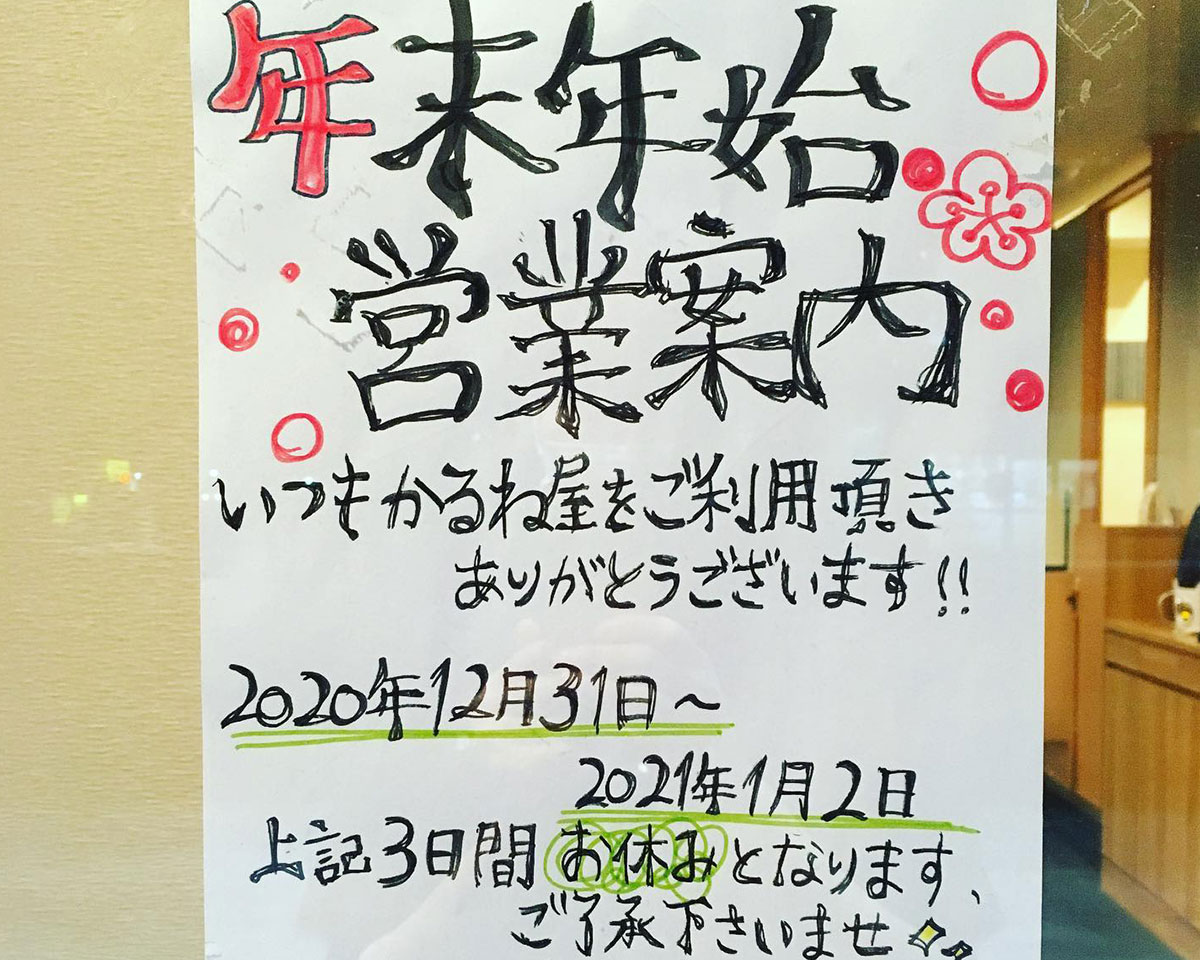 年末年始
営業案内
いつもかるね屋をご利用頂き
ありがとうございます!!
2020年12月31日~
2021年1月2日
上記3日間お休みとなります、
ご了承下さいませ